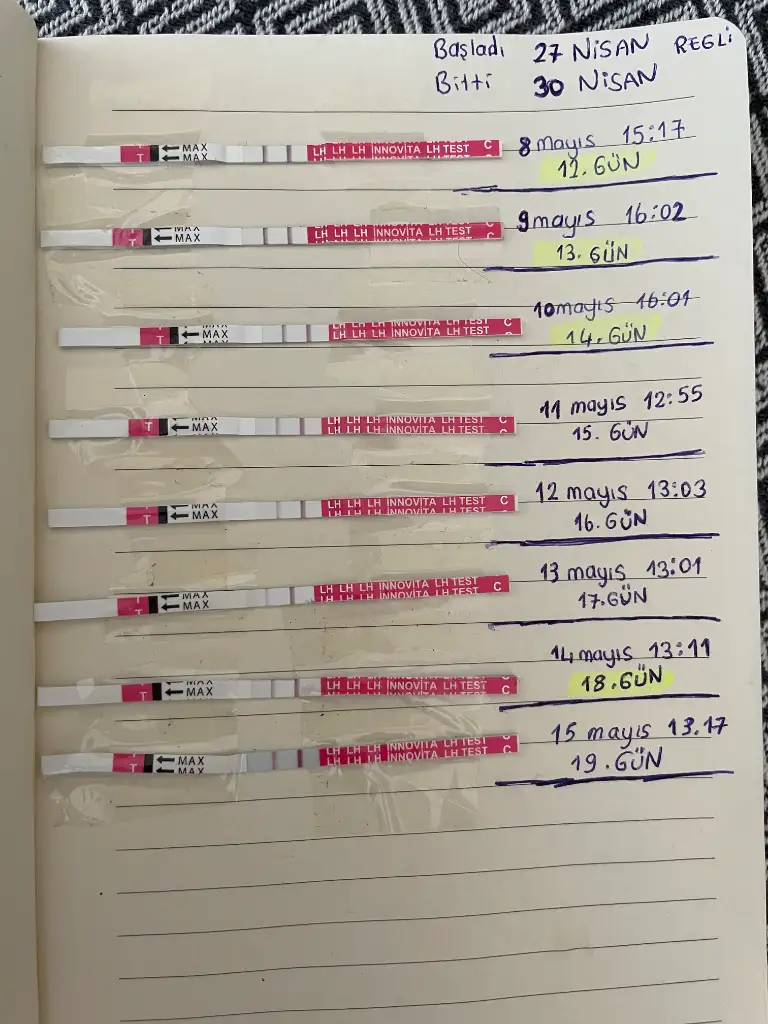 Başladı 27 NİSAN REGLİ
Bitti 30 NİSAN
T MAX MAX LH LH LH İNNOVİTA LH TEST C 8 mayıs 15:17
12. GÜN
T MAX MAX LH LH LH İNNOVİTA LH TEST C 9 mayıs 16:02
13. GÜN
T MAX MAX LH LH LH İNNOVİTA LH TEST C 10 mayıs 16:01
14. GÜN
T MAX MAX LH LH LH İNNOVİTA LH TEST C 11 mayıs 12:55
15. GÜN
T MAX MAX LH LH LH İNNOVİTA LH TEST C 12 mayıs 13:03
16. GÜN
T MAX MAX LH LH LH İNNOVİTA LH TEST C 13 mayıs 13:01
17. GÜN
T MAX MAX LH LH LH İNNOVİTA LH TEST C 14 mayıs 13:11
18. GÜN
T MAX MAX LH LH LH İNNOVİTA LH TEST C 15 mayıs 13.17
19. GÜN